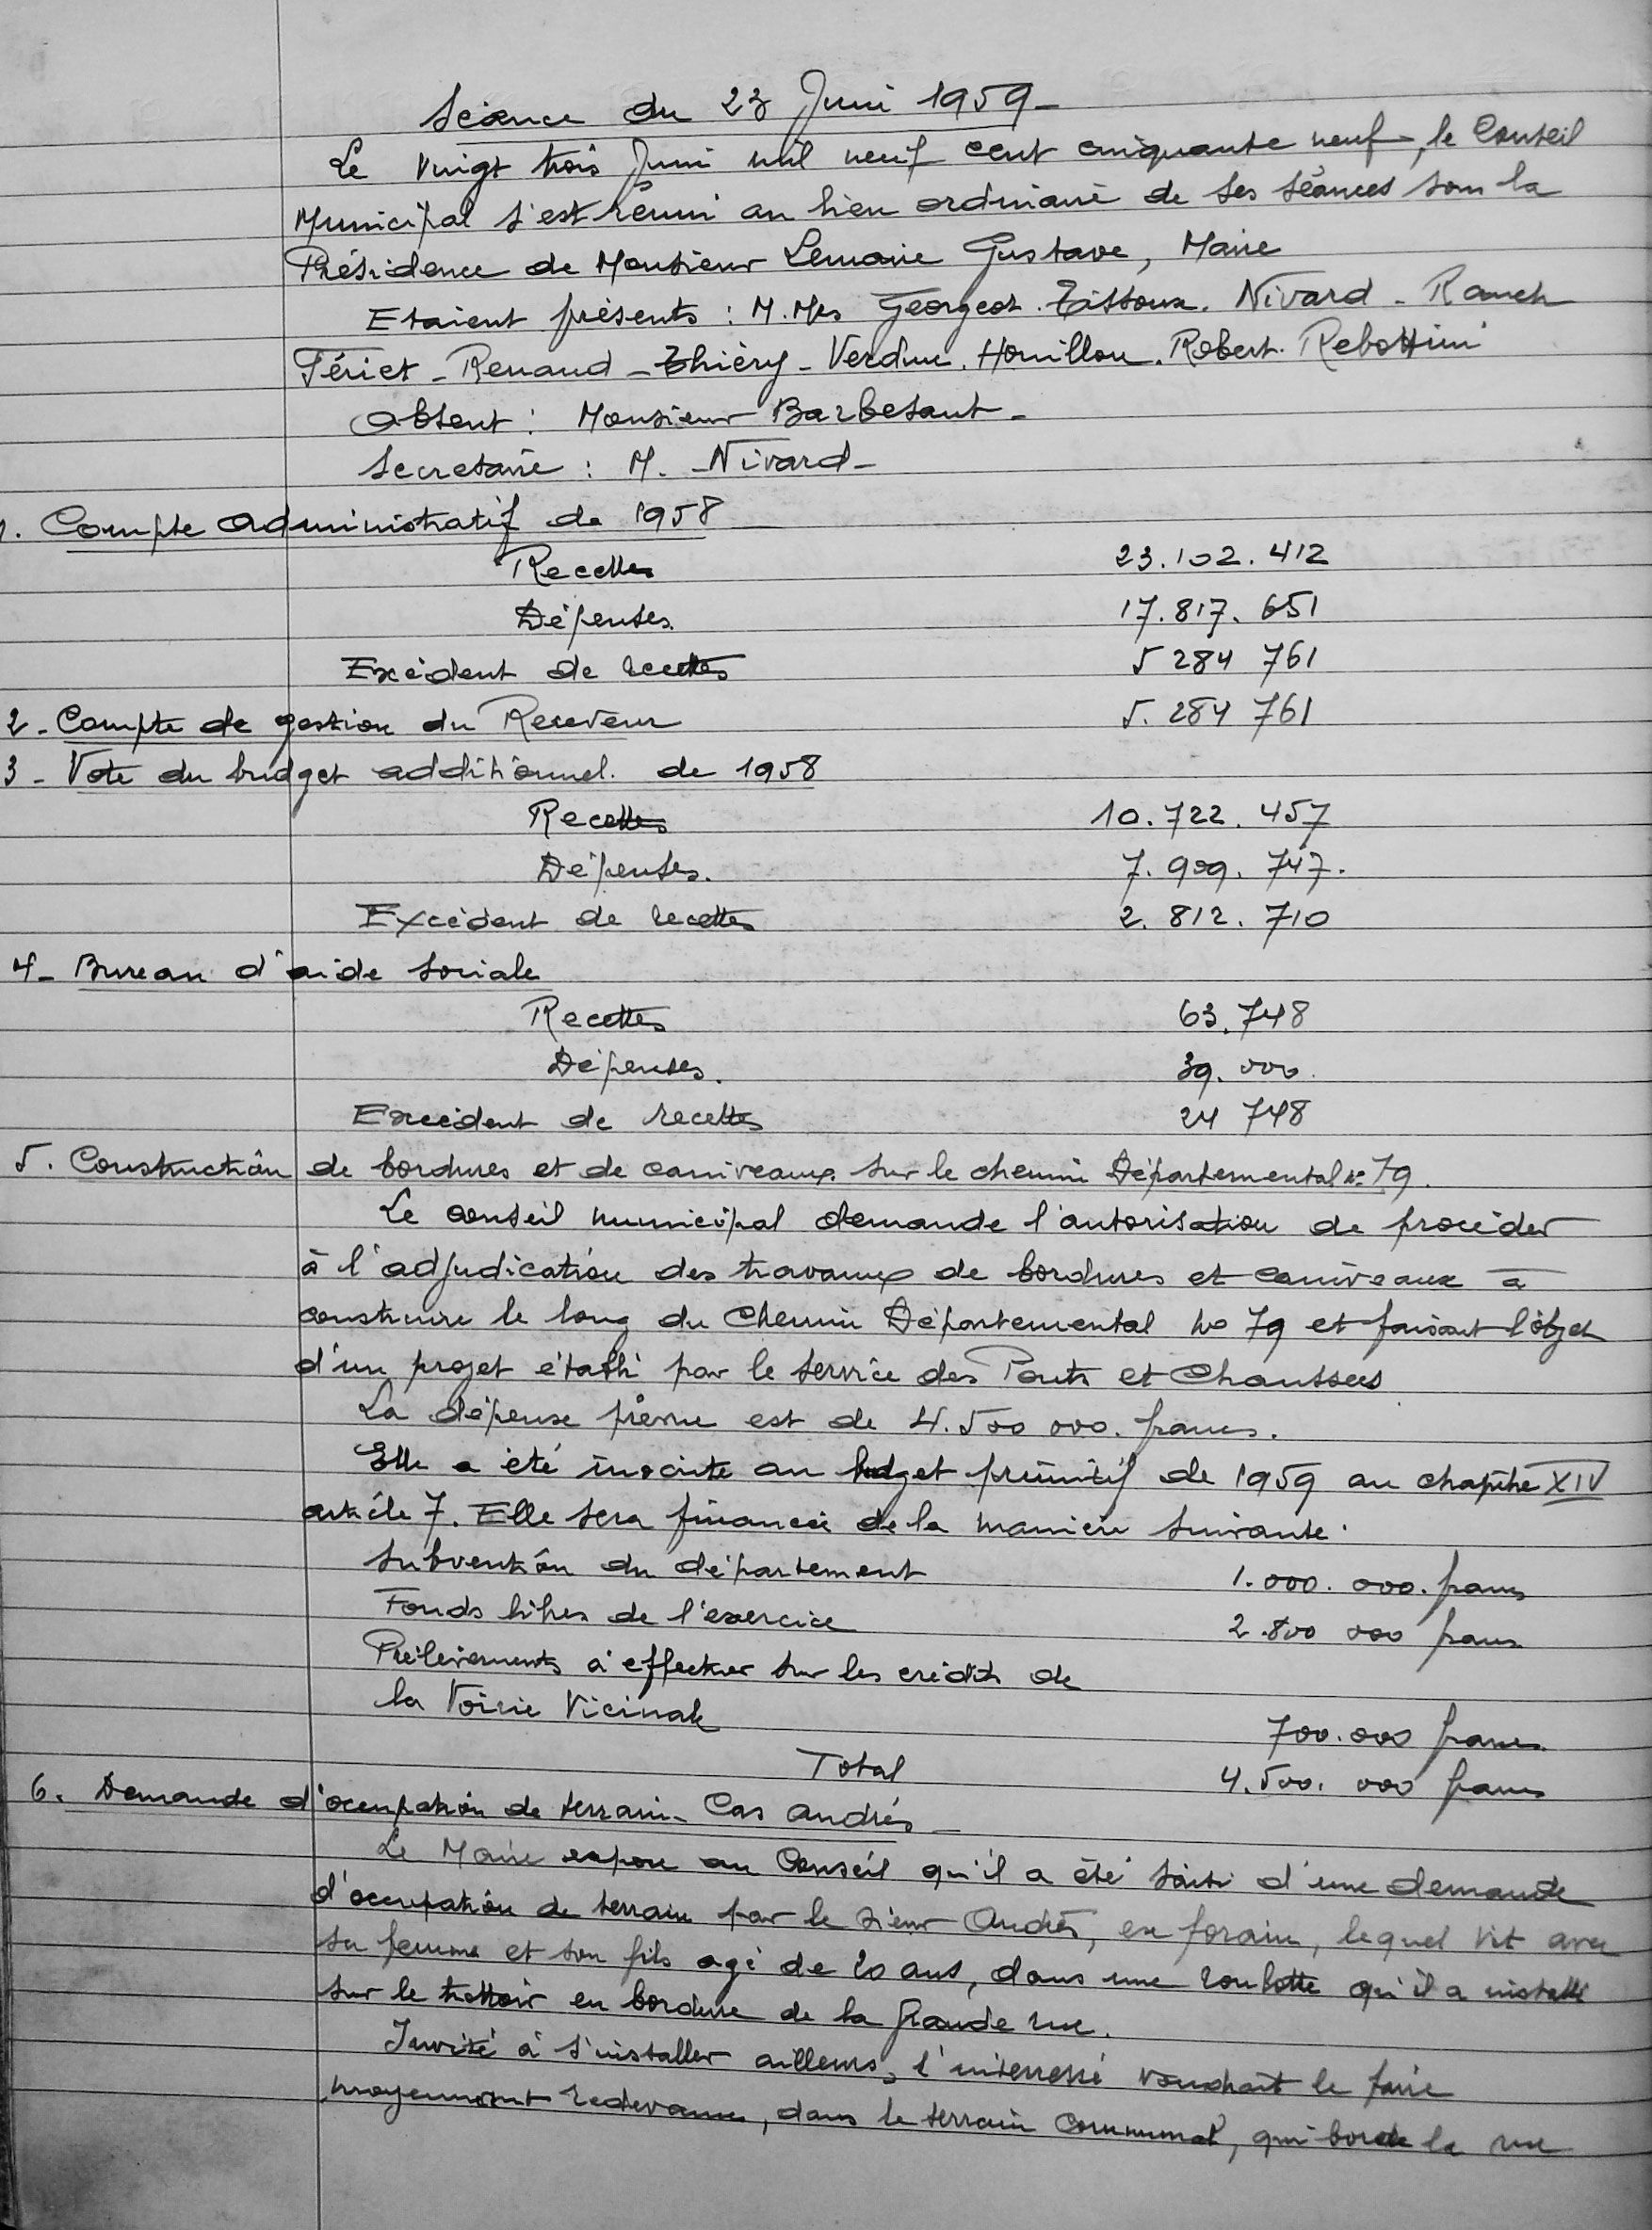 Séance du 23 Juin 1959_
Le vingt trois Juin mil neuf cent cinquante neuf, le Conseil
Municipal s'est réuni au lieu ordinaire de ses séances sous la
Présidence de Monsieur Lemaire Gustave, Maire
Etaient présents : M.Mrs Georgeot. Tissoux. Nivard - Rauch
Fériet - Renaud - Thiéry - Verdun. Houillon. Robert. Rebottini
Absent : Monsieur Barbesant -
Secretaire : M. - Nivard -
1. Compte administratif de 1958
Recettes 23.102.412
Dépenses. 17.817.651
Excédent de recettes 5 284 761
2 - Compte de gestion du Receveur 5. 284 761
3 - Vote du budget additionnel. de 1958
Recettes 10.722.457
Dépenses. 7.909.747.
Excédent de recettes 2.812.710
4 - Bureau d'aide sociale
Recettes 63.748
Dépenses. 39.000.
Excédent de recettes 24 748
5. Construction de bordures et de caniveaux. sur le chemin Départemental N° 79.
Le conseil municipal demande l'autorisation de procéder
à l'adjudication des travaux de bordures et caniveaux à
construire le long du Chemin Départemental No 79 et faisant l'objet
d'un projet établi par le service des Ponts et Chaussées
La dépense prévue est de 4.500 000. francs.
Elle a été inscrite au budget primitif de 1959 au chapitre XIV
article 7. Elle sera financée de la manière suivante :
Subvention du département 1.000.000. francs
Fonds libres de l'exercice 2.800 000 francs
Prélèvements à effectuer sur les crédits de
la Voirie Vicinale 700.000 francs.
Total 4.500.000 francs
6. Demande d'occupation de terrain - Cas Andrés -
Le Maire expose au Conseil qu'il a été saisi d'une demande
d'occupation de terrain par le sieur Andrés, ex forain, lequel vit avec
sa femme et son fils agé de 20 ans, dans une roulotte qu'il a installé
sur le trottoir en bordure de la Grande rue.
Invité à s'installer ailleurs, l'interressé voudrait le faire
moyennant redevance, dans le terrain communal, qui borde la rue